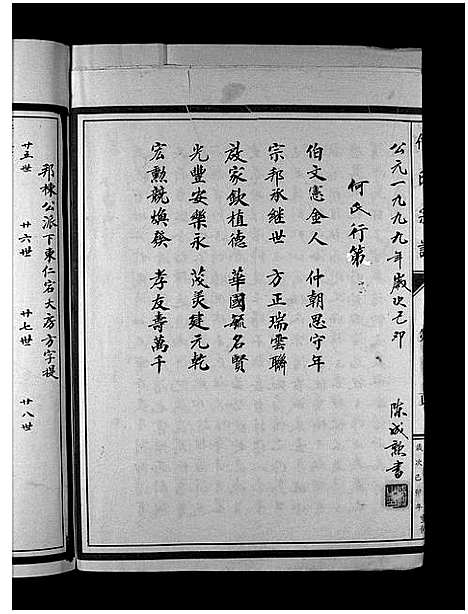 公元一九九九年歲次己卯
何氏行第
伯文憲金人 仲朝思守年
宗邦承继世 方正瑞雲聯
放家欽植德 華國毓名賢
光豐安樂永 茂美建元乾
宏勲競煥發 孝友壽萬千
陈成勲書
歲次己卯年
邦棟公派下東仁宕大房方字提
廿五世 廿六世 廿七世 廿八世